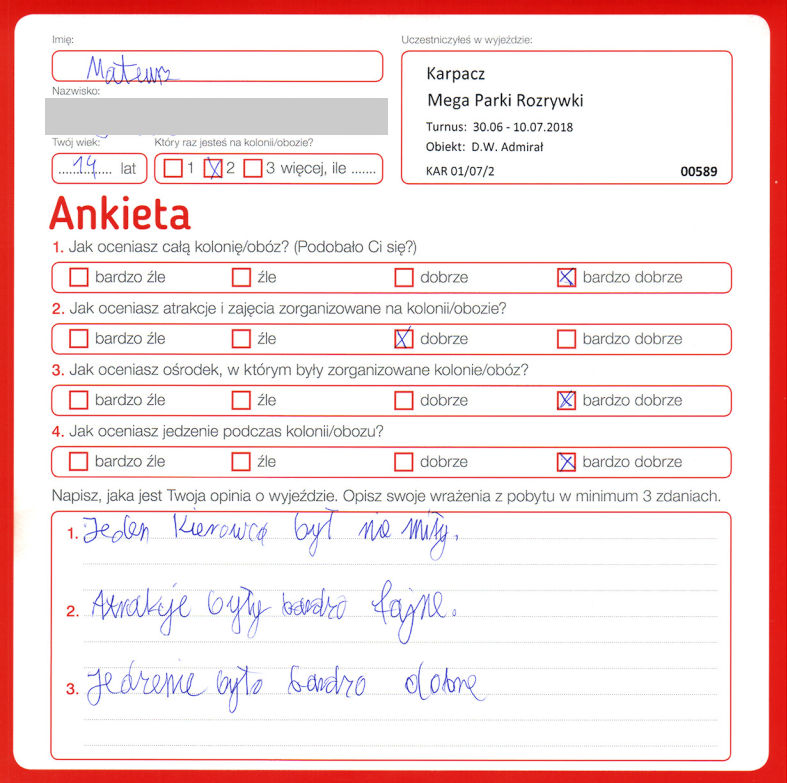 Imię:
Mateusz
Uczestniczyłeś w wyjeździe:
Karpacz
Mega Parki Rozrywki
Turnus: 30.06 - 10.07.2018
Obiekt: D.W. Admirał
KAR 01/07/2 00589
Nazwisko:
Twój wiek: Który raz jesteś na kolonii/obozie?
14 lat 1 2 3 więcej, ile .......
Ankieta
1. Jak oceniasz całą kolonię/obóz? (Podobało Ci się?)
bardzo źle źle dobrze bardzo dobrze
2. Jak oceniasz atrakcje i zajęcia zorganizowane na kolonii/obozie?
bardzo źle źle dobrze bardzo dobrze
3. Jak oceniasz ośrodek, w którym były zorganizowane kolonie/obóz?
bardzo źle źle dobrze bardzo dobrze
4. Jak oceniasz jedzenie podczas kolonii/obozu?
bardzo źle źle dobrze bardzo dobrze
Napisz, jaka jest Twoja opinia o wyjeździe. Opisz swoje wrażenia z pobytu w minimum 3 zdaniach.
1. Jeden Kierowca był nie miły.
2. Atrakcje były bardzo fajne.
3. Jedzenie było bardzo dobre